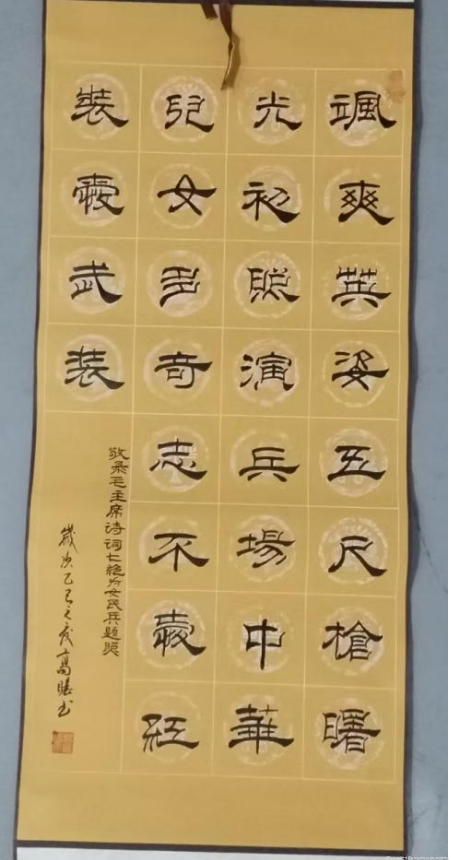 颯爽英姿五尺槍曙
光初照演兵場中華
兒女多奇志不愛紅
裝愛武装
敬录毛主席诗词七绝为女民兵题照
歲次乙巳之高书